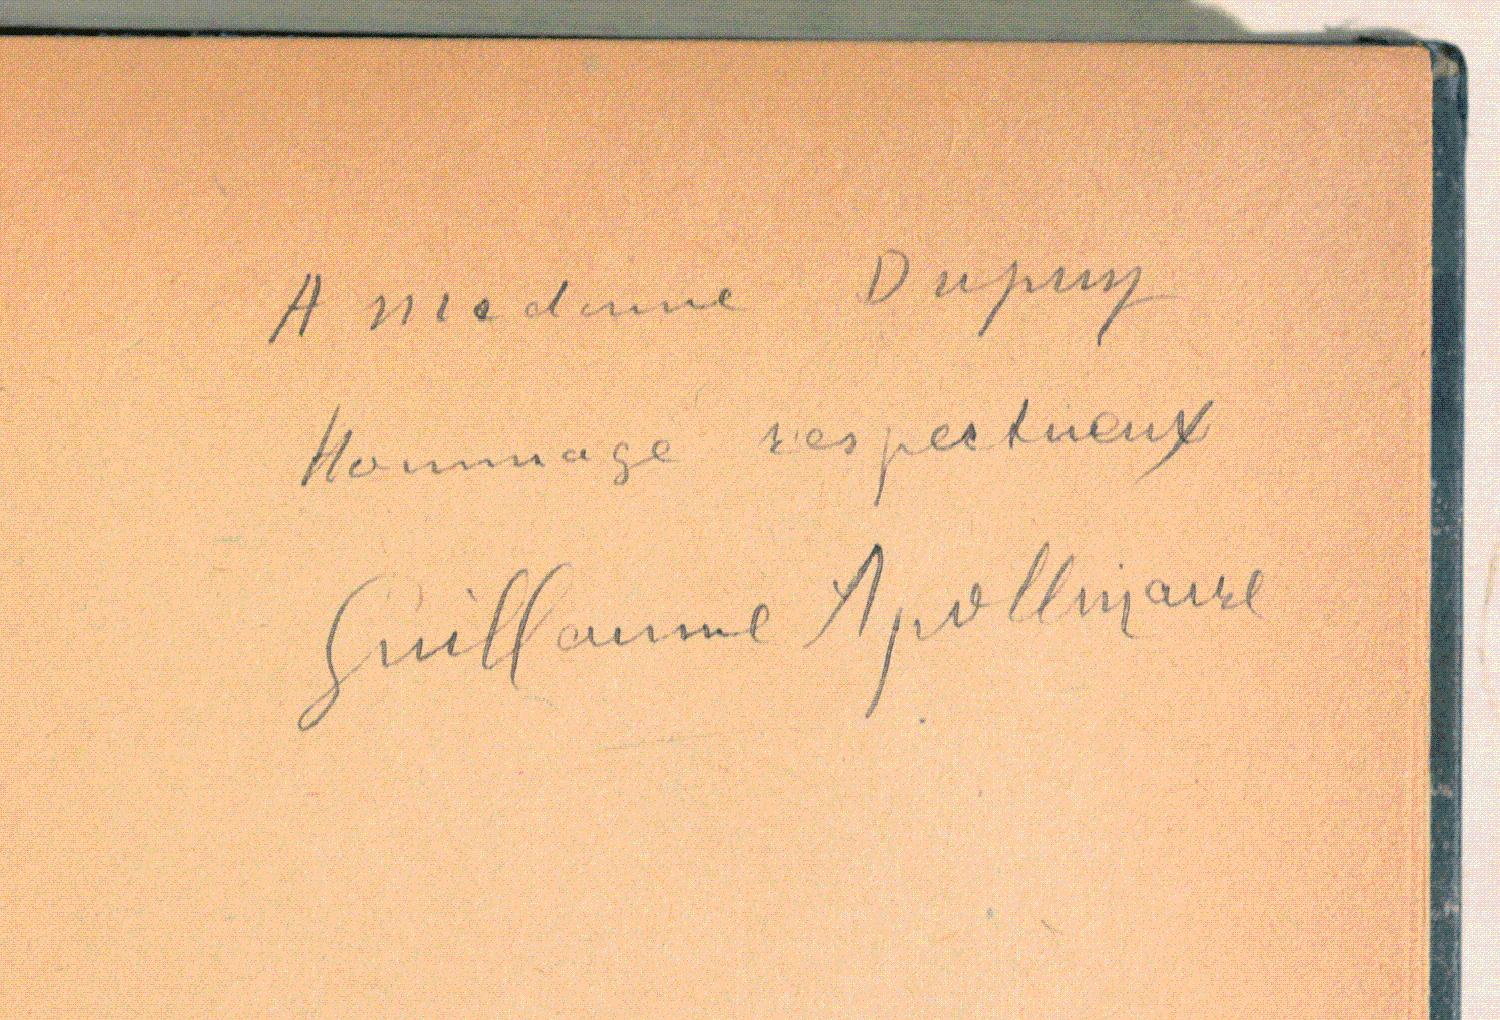 A Madame Dupuy
Hommage respectueux
Guillaume Apollinaire